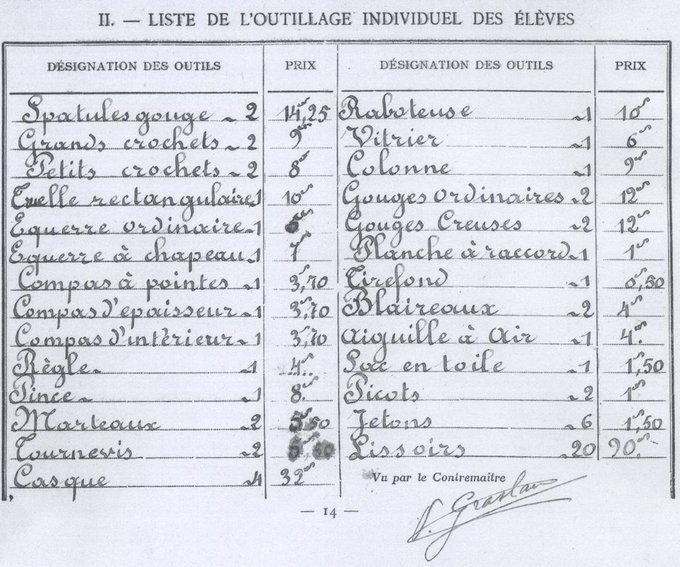 II. — LISTE DE L'OUTILLAGE INDIVIDUEL DES ÉLÈVES
DÉSIGNATION DES OUTILS PRIX
Spatules gouge 2 14,25
Grands crochets 2 9
Petits crochets 2 8
Truelle rectangulaire 1 10
Equerre ordinaire 1
Equerre à chapeau 1 7
Compas à pointes 1 3,70
Compas d'epaisseur 1 3,70
Compas d'intérieur 1 3,70
Règle 1 4
Pince 1 8
Marteaux 2 5,50
Tournevis 2
Casque 4 32
DÉSIGNATION DES OUTILS PRIX
Raboteuse 1 10
Vitrier 1 6
Colonne 1 9
Gouges ordinaires 2 12
Gouges Creuses 2 12
Planche à raccord 1 1
Tirefond 1 0,50
Blaireaux 2 4
Aiguille à Air 1 4
Sac en toile 1 1,50
Picots 2 1
Jetons 6 1,50
Lissoirs 20 90
Vu par le Contremaître
— 14 —